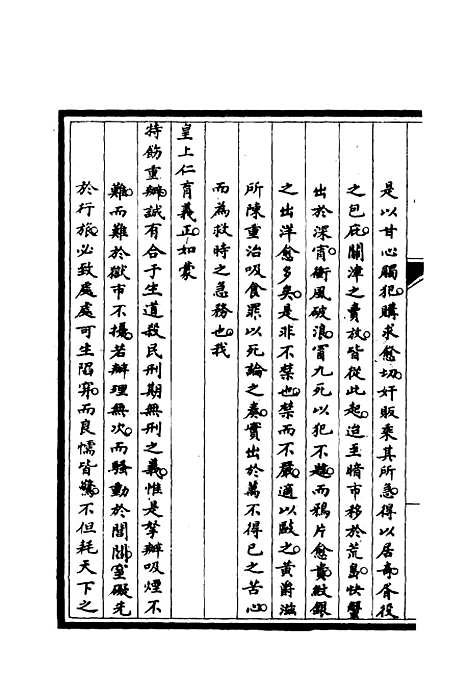 是以甘心觸犯購求愈切奸販乘其所急得以居奇胥役
之包庇關津之賣放皆從此起迨至暗市移於荒島快蟹
出於深宵衝風破浪冒九死以犯不韙而鴉片愈貴紋銀
之出洋愈多矣是非不禁也禁而不嚴適以敺之黃爵滋
所陳重治吸食罪以死論之奏實出於萬不得已之苦心
而為救時之急務也我
皇上仁育義正如蒙
持飭重辦誠有合于生道殺民刑期無刑之義惟是拏辦吸煙不
難而難於獄市不擾若辦理無次而騷動於閭閻窒礙先
於行旅必致處處可生陷穽而良懦皆驚不但耗天下之